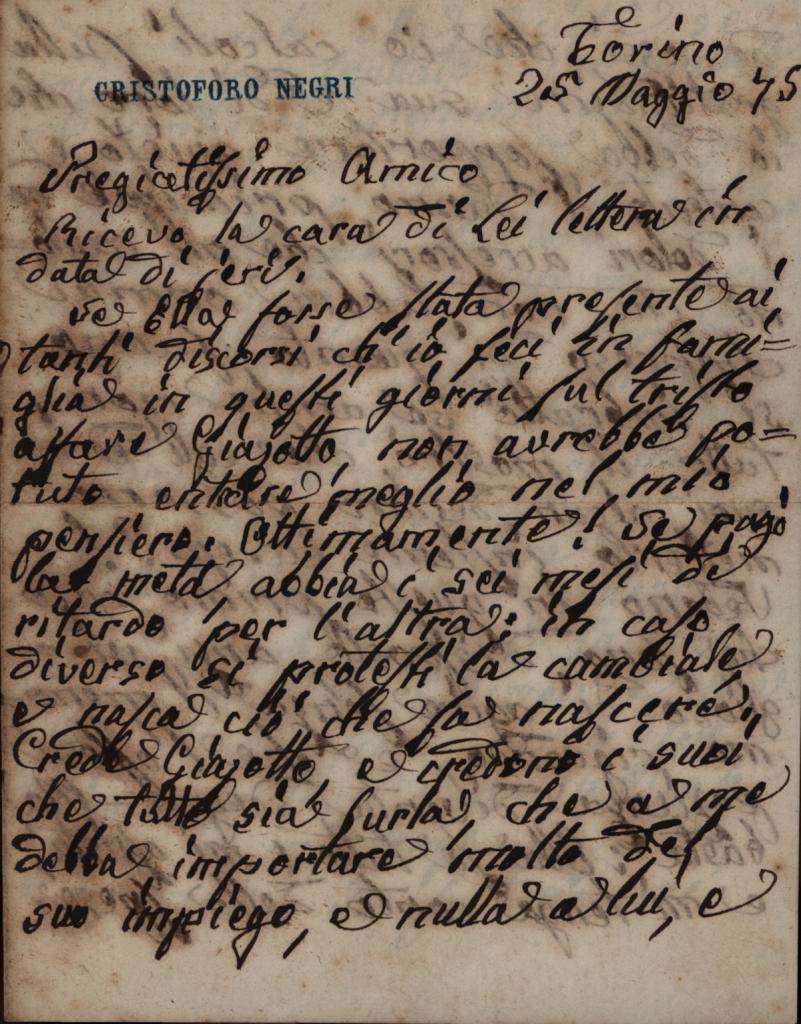 CRISTOFORO NEGRI
Torino
25 Maggio 75
Pregiatissimo Amico
Ricevo la cara di Lei lettera in
data di jeri.
Se Ella fosse stata presente ai
tanti discorsi ch'io feci in fami=
glia in questi giorni sul tristo
affare Giajotto, non avrebbe po=
tuto entrare meglio nel mio
pensiero. Ottimamente! Se pagò
la metà, abbia i sei mesi di
ritardo per l'altra: in caso
diverso si protesti la cambiale
e nasca ciò che sa nascere.
Crede Giajotto, e credono i suoi
che tutto sia burla, che a me
debba importare molto del
suo impiego, e nulla a lui, e